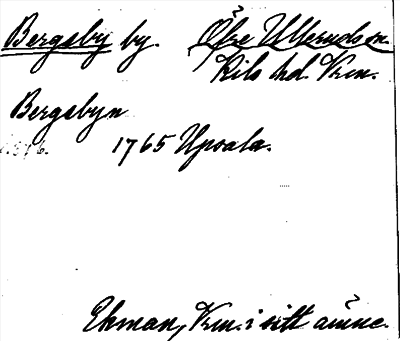 Bergsby by. Övre Ulleruds sn.
Kils hd. Vrm.
Bergsbyn
1765 Upsala.
Ekman, Vrm. i sitt ämne.